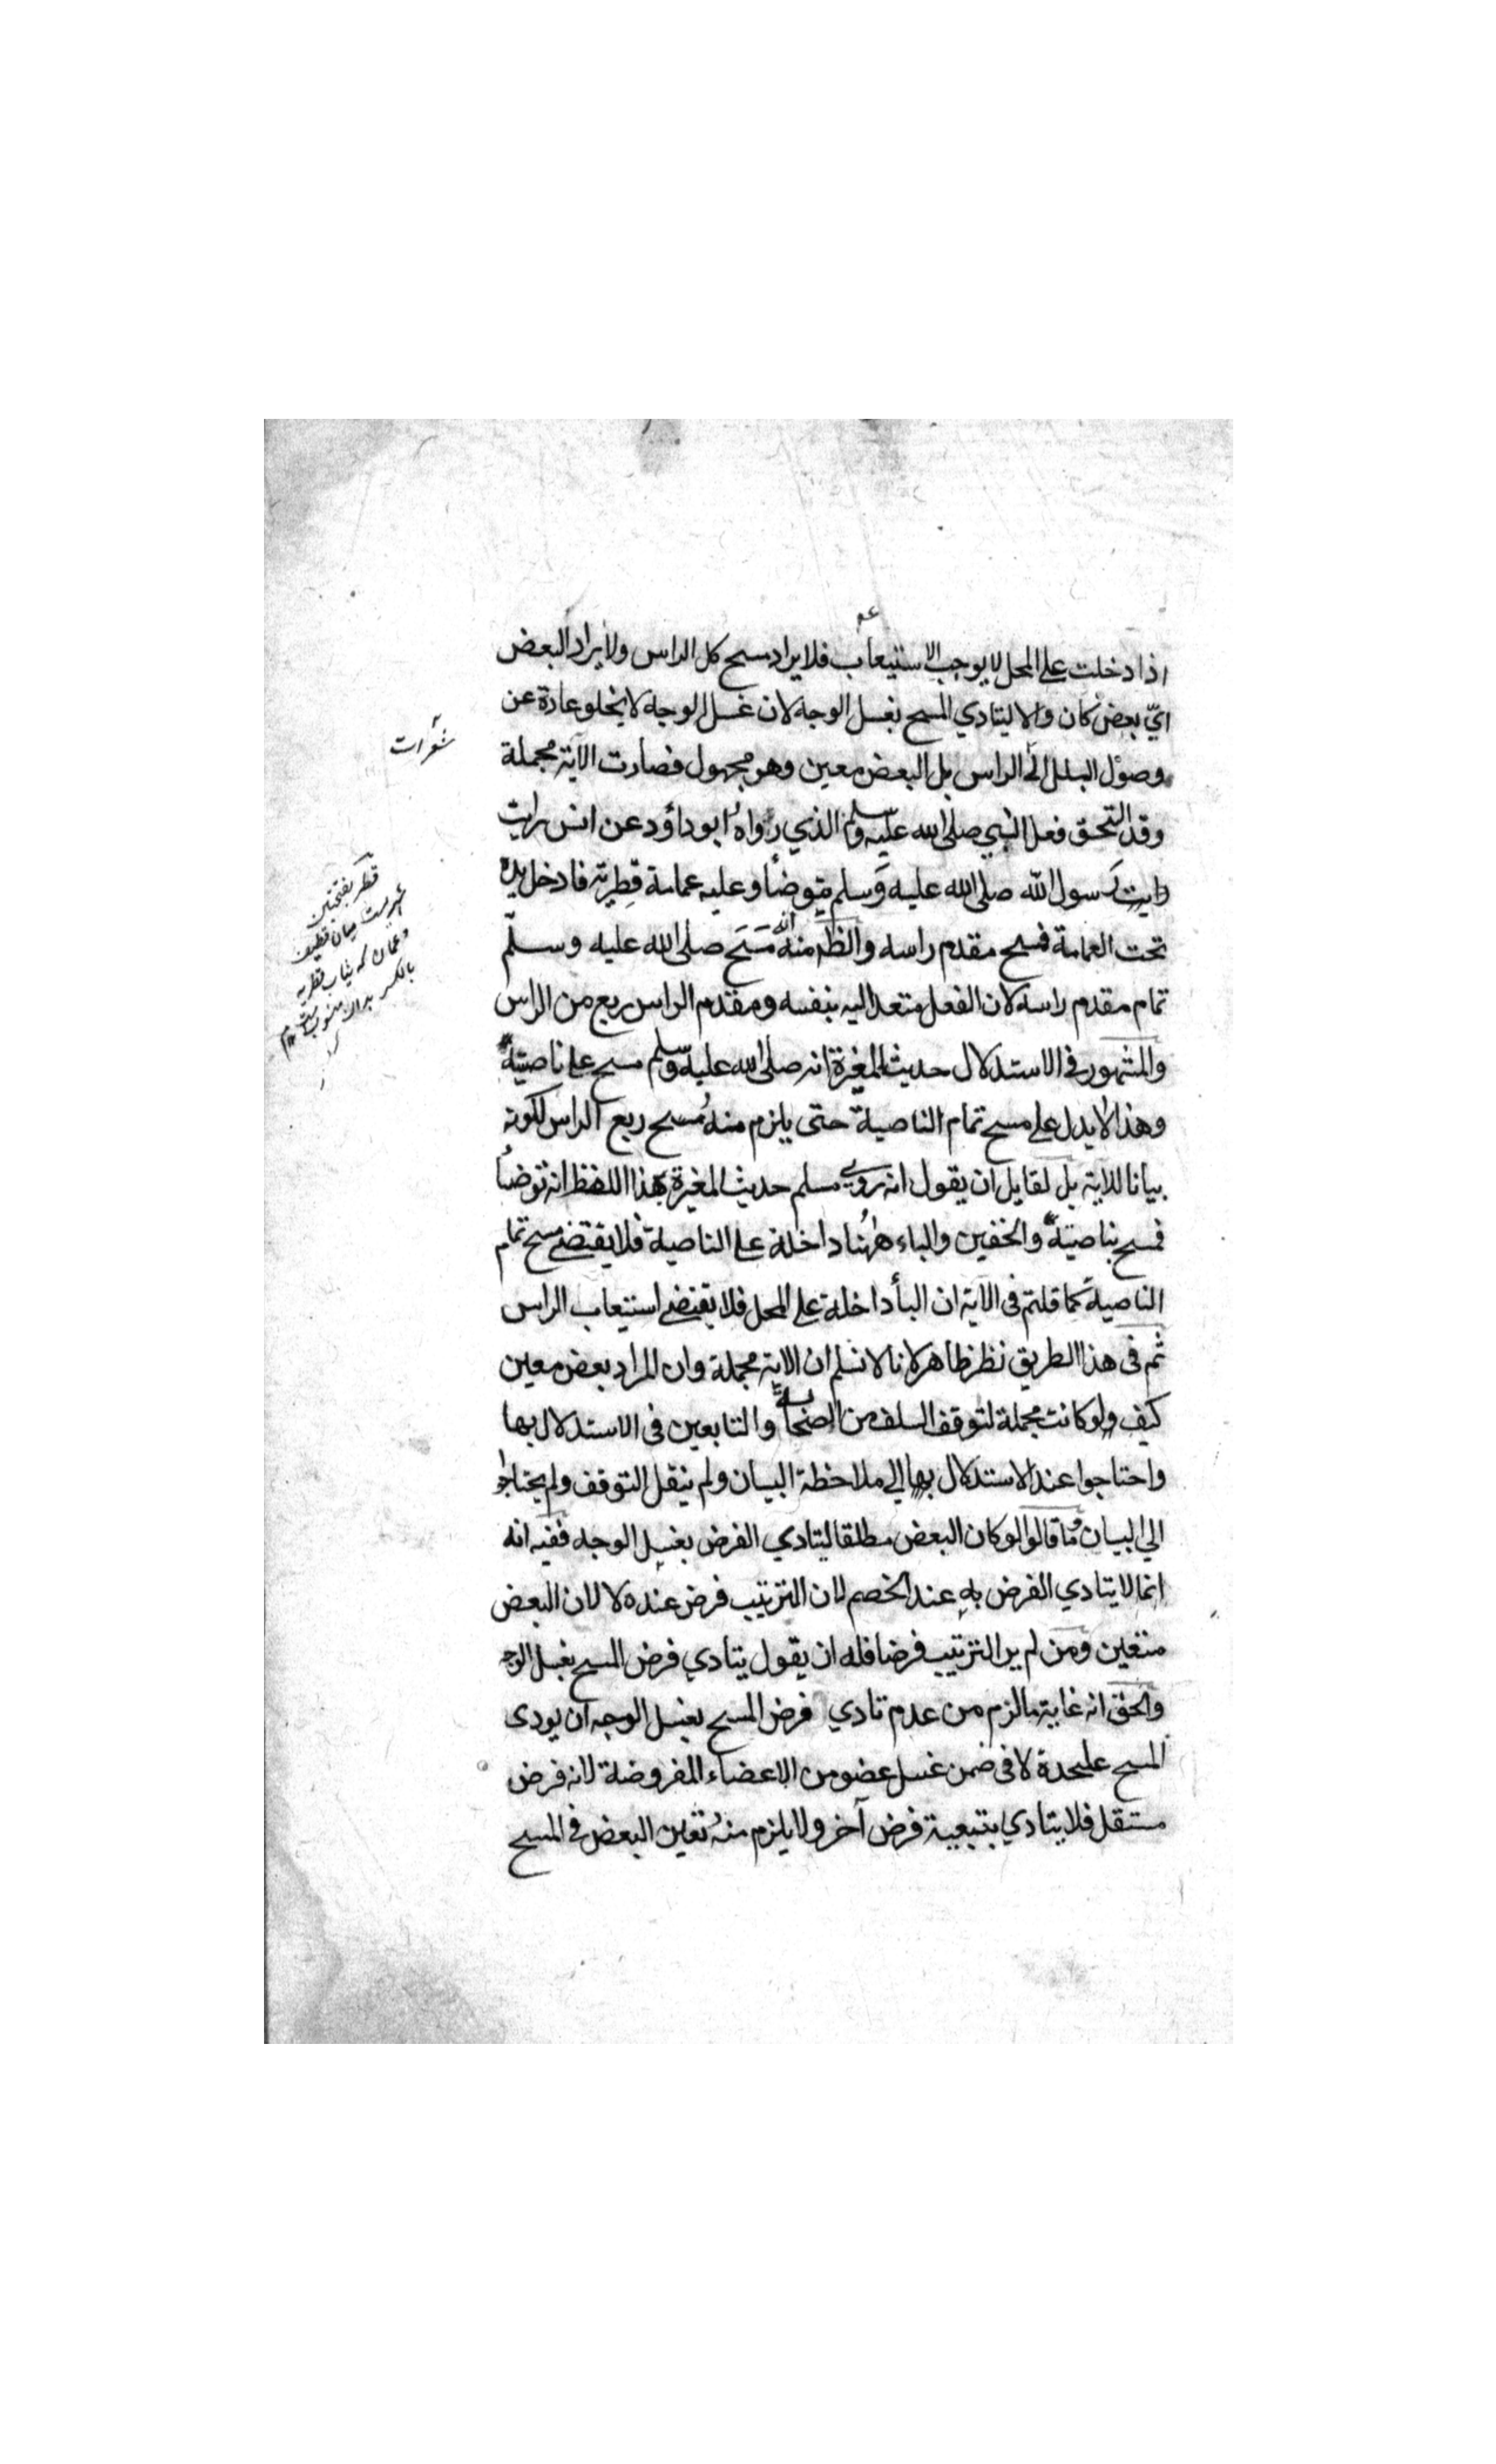 اذا دخلت على المحل لا يوجب الاستيعاب فلا يراد مسح كل الراس ولا يراد البعض
ايّ بعض كان والا ليتادي المسح بغسل الوجه لان غسل الوجه لا يخلو عادة عن
وصول البلل الى الراس بل البعض معين وهو مجهول فصارت الآية مجملة
وقد التحق فعل النبي صلى الله عليه وسلم الذي رواه ابو داؤد عن انس رايت
رايت رسول الله صلى الله عليه وسلم يتوضأ وعليه عمامة قِطرية فادخل يده
تحت العمامة فمسح مقدم راسه والظه منه انه مَسَح صلى الله عليه وسلّم
تمام مقدم راسه لان الفعل متعد اليه بنفسه ومقدم الراس ربع من الراس
والمشهور في الاستدلال حديث المغيرة انه صلى الله عليه وسلم مسح على ناصيته
وهذا لا يدل على مسح تمام الناصية حتى يلزم منه مسح ربع الراس لكونه
بيانا للاية بل لقايل ان يقول انه روي مسلم حديث المغيرة بهذا اللفظ انه توضأ
فمسح بناصيته والخفين والباء ههُنا داخلة على الناصية فلا يقتضي مسح تمام
الناصية كما قلتم في الآية ان البأ داخلة على المحل فلا يقتضي استيعاب الراس
ثم في هذا الطريق نظر ظاهر لانا لا نسلم ان الاية مجملة وان المراد بعض معين
كيف ولو كانت مجملة لتوقف السلف من الصحابة والتابعين في الاستدلال بها
واحتاجوا عند الاستدلال بها الي ملاحظة البيان ولم ينقل التوقف ولم يحتاجوا
الي البيان وما قالوا لو كان البعض مطلقا ليتادي الفرض بغسل الوجه ففيه انه
انما لا يتادي الفرض به عند الخصم لان الترتيب فرض عنده لا لان البعض
متعين ومن لم ير الترتيب فرضا فله ان يقول يتادي فرض المسح بغسل الوجه
والحق انه غاية ما لزم من عدم تادي فرض المسح بغسل الوجه ان يودى
المسح عليحدة لا في ضمن غسل عضو من الاعضاء المفروضة لانه فرض
مستقل فلا يتادي بتبعية فرض آخر ولا يلزم منه تعين البعض في المسح
شعرات
قطر بفتحتين
شهريست ميان قطيف
وعمان كه ثياب قطريه
بالكسر بدان منسوب